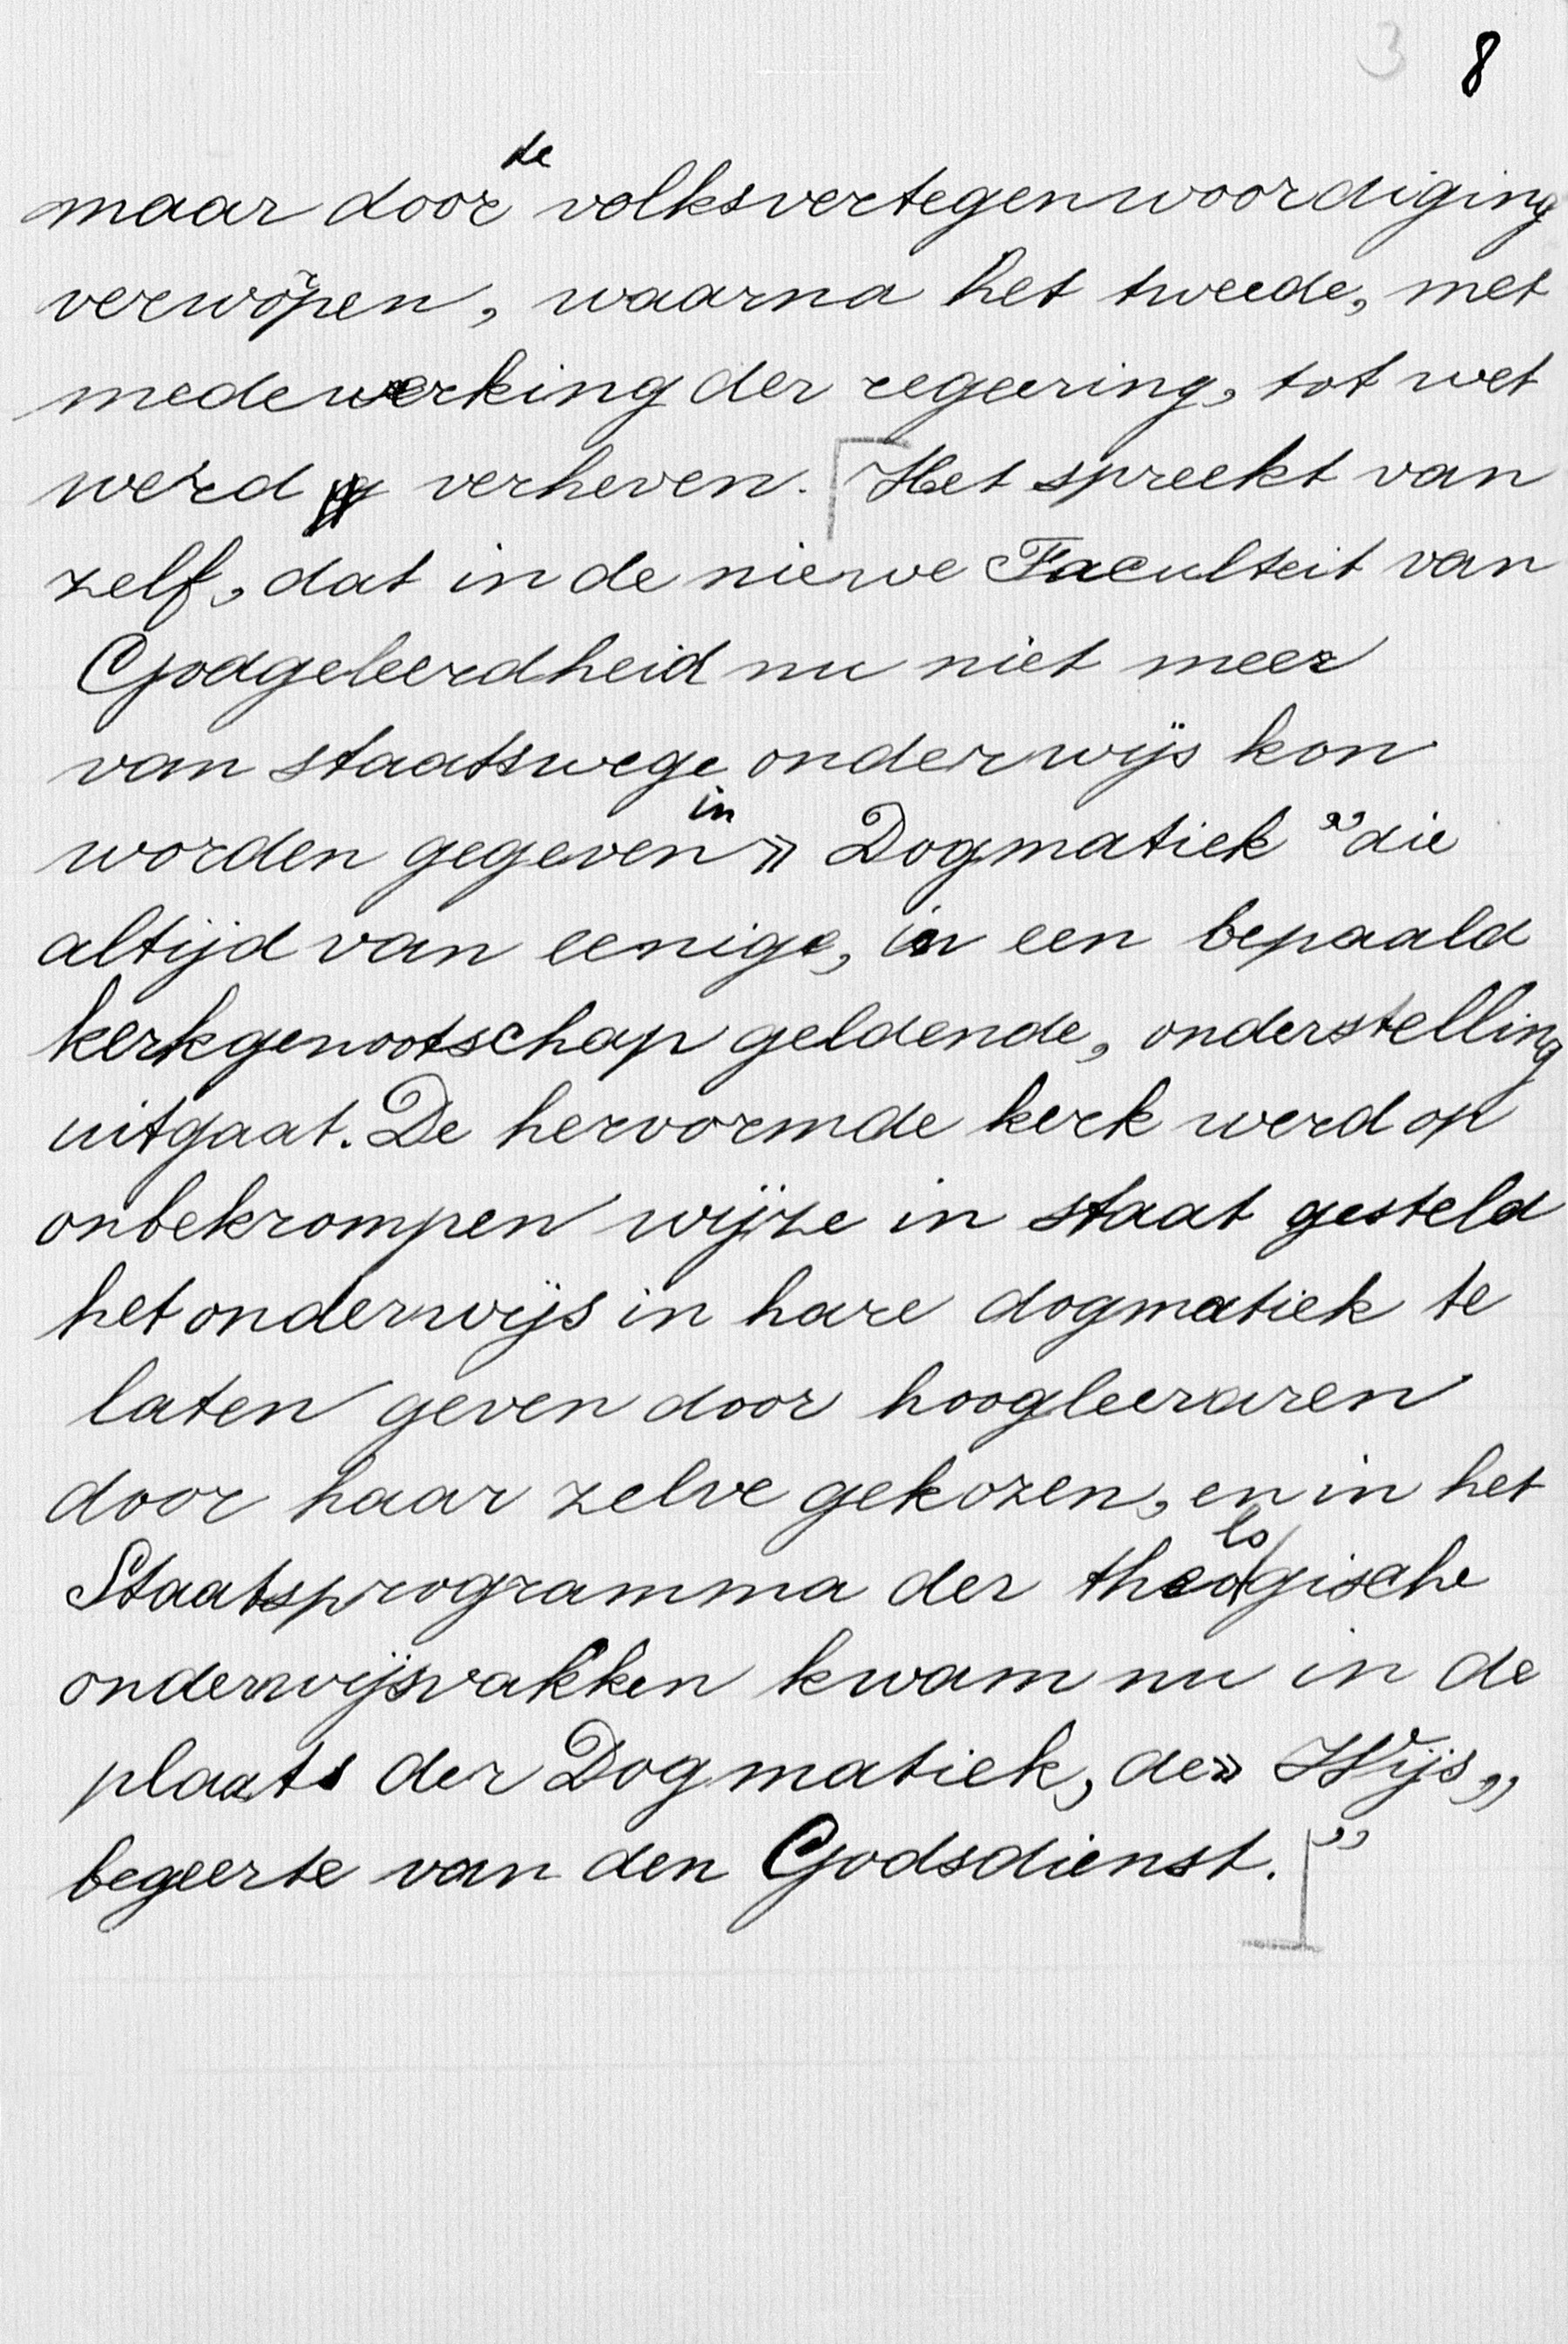 3 8
maar door de volksvertegenwoordiging
verworpen, waarna het tweede, met
medewerking der regeering, tot wet
werd verheven. Het spreekt van
zelf, dat in de nieuwe Faculteit van
Godgeleerdheid nu niet meer
van staatswege onderwijs kon
worden gegeven in » Dogmatiek ” die
altijd van eenige, in een bepaald
kerkgenootschap geldende, onderstelling
uitgaat. De hervormde kerk werd op
onbekrompen wijze in staat gesteld
het onderwijs in hare dogmatiek te
laten geven door hoogleeraren
door haar zelve gekozen, en in het
Staatsprogramma der theologische
onderwijsvakken kwam nu in de
plaats der Dogmatiek, de » Wijs„
begeerte van den Godsdienst.”